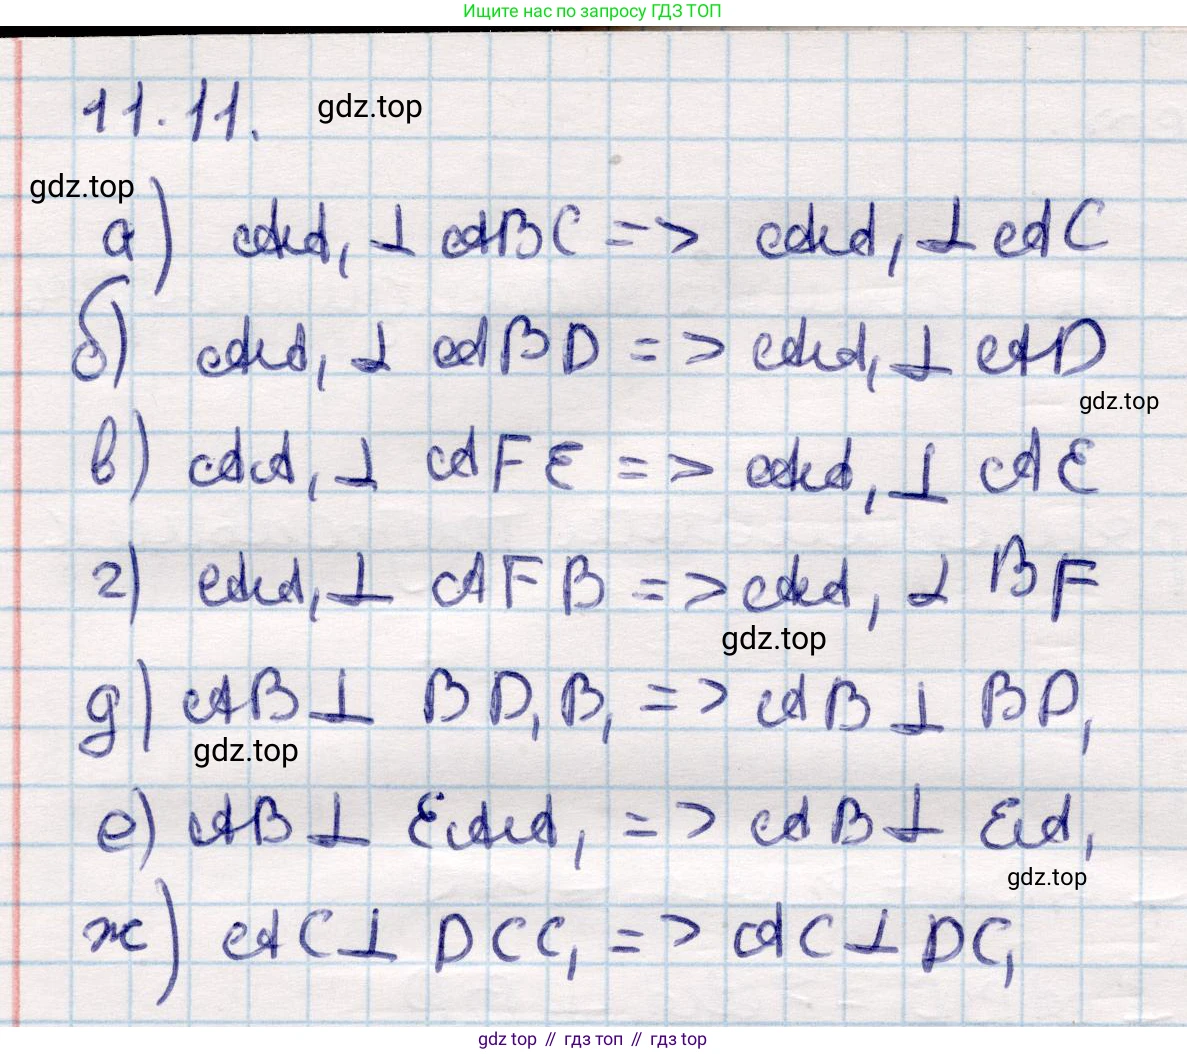 Ищите нас по запросу ГДЗ ТОП
11.11. gdz.top
gdz.top
а) AA₁ ⊥ ABC => AA₁ ⊥ AC
б) AA₁ ⊥ ABD => AA₁ ⊥ AD
gdz.top
в) AA₁ ⊥ AFE => AA₁ ⊥ AE
г) AA₁ ⊥ AFB => AA₁ ⊥ BF
gdz.top
д) AB ⊥ BD₁B₁ => AB ⊥ BD₁
gdz.top
е) AB ⊥ EAA₁ => AB ⊥ EA₁
gdz.top
ж) AC ⊥ DCC₁ => AC ⊥ DC₁
gdz.top // гдз топ // gdz.top